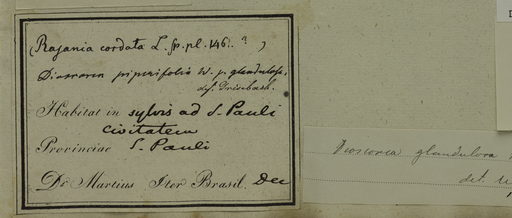 (Rajania cordata L. sp. pl. 146. ? )
Dioscorea piperifolia W. γ. glandulosa,
det. Grisebach.
Habitat in sylvis ad S. Pauli
civitatem
Provinciae S. Pauli
Dr. Martius Iter Brasil. Dec
Dioscorea glandulosa
det.